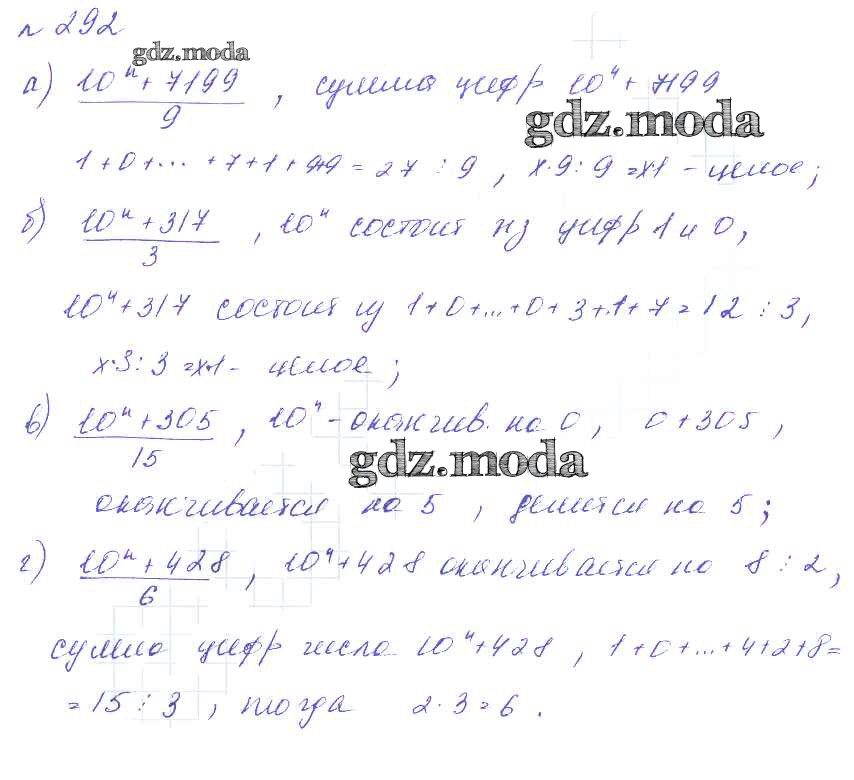 № 292
gdz.moda
а) (10ⁿ + 7199)/9 , сумма цифр 10ⁿ + 7199
gdz.moda
1 + 0 + ... + 7 + 1 + 9+9 = 27 ⋮ 9 , x·9 : 9 = x·1 – целое ;
б) (10ⁿ + 317)/3 , 10ⁿ состоит из цифр 1 и 0 ,
10ⁿ + 317 состоит из 1 + 0 + ... + 0 + 3 + 1 + 7 = 12 ⋮ 3 ,
x·3 : 3 = x·1 – целое ;
в) (10ⁿ + 305)/15 , 10ⁿ – оканчив. на 0 , 0 + 305 ,
gdz.moda
оканчивается на 5 , делится на 5 ;
г) (10ⁿ + 428)/6 , 10ⁿ + 428 оканчивается на 8 ⋮ 2 ,
сумма цифр числа 10ⁿ + 428 , 1 + 0 + ... + 4 + 2 + 8 =
= 15 ⋮ 3 , тогда 2 · 3 = 6 .